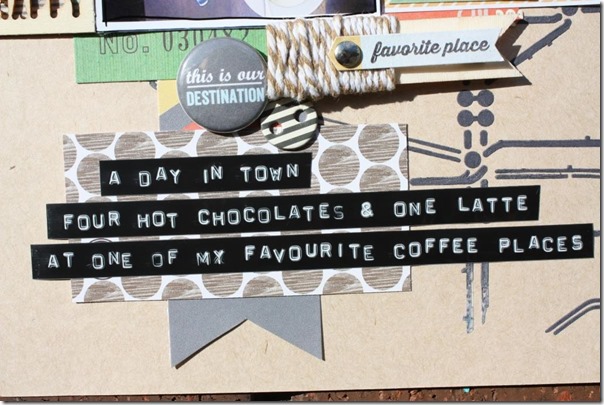 No.
this is our
DESTINATION
favorite place
A DAY IN TOWN
FOUR HOT CHOCOLATES & ONE LATTE
AT ONE OF MY FAVOURITE COFFEE PLACES